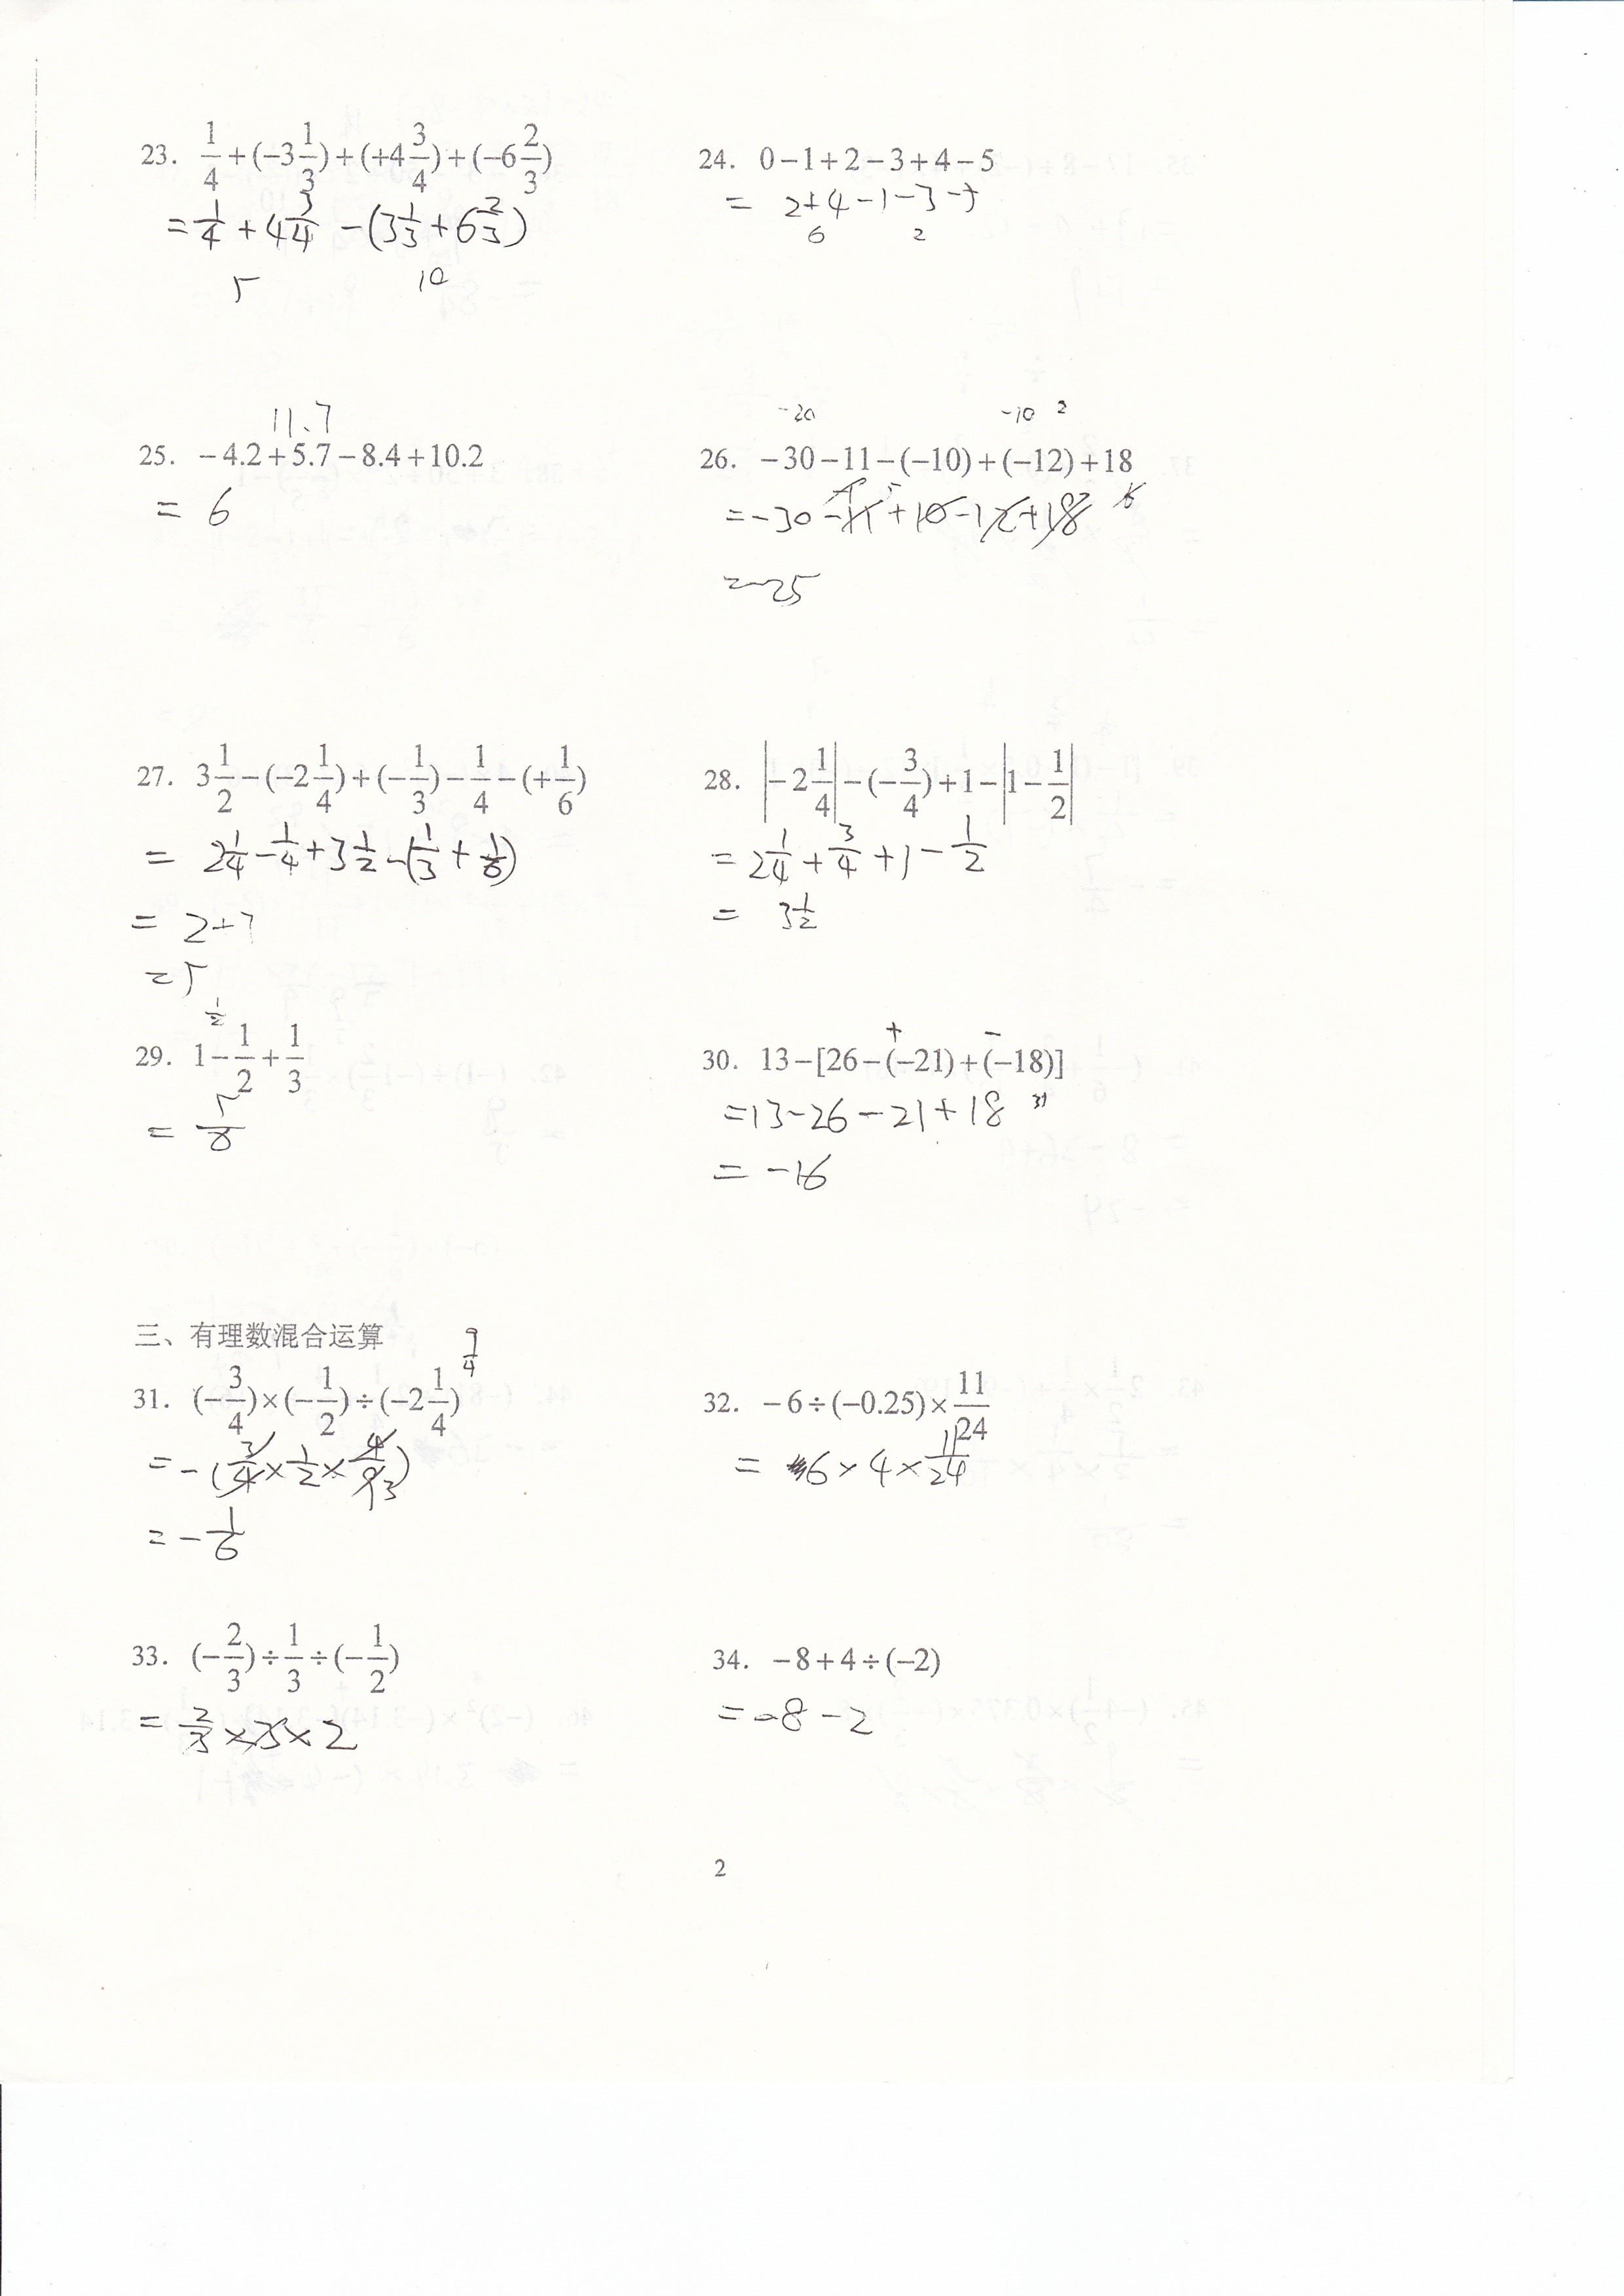 23. 1/4+(−3 1/3)+(+4 3/4)+(−6 2/3)
=1/4+4 3/4−(3 1/3+6 2/3)
5 10
24. 0−1+2−3+4−5
= 2+4−1−3−5
6 2
11.7
25. −4.2+5.7−8.4+10.2
= 6
-20 -10 2
26. −30−11−(−10)+(−12)+18
=-30-11+10-12+18
=-25
27. 3 1/2−(−2 1/4)+(−1/3)−1/4−(+1/6)
= 2 1/4−1/4+3 1/2−(1/3+1/6)
= 2+3
=5
28. |−2 1/4|−(−3/4)+1−|1−1/2|
= 2 1/4+3/4+1−1/2
= 3 1/2
1/2
29. 1−1/2+1/3
= 5/6
+ −
30. 13−[26−(−21)+(−18)]
=13-26-21+18 31
= -16
三、有理数混合运算
9/4
31. (−3/4)×(−1/2)÷(−2 1/4)
=-(3/4×1/2×4/9 3)
=-1/6
32. −6÷(−0.25)×11/24
= 6×4×11/24
33. (−2/3)÷1/3÷(−1/2)
= 2/3×3×2
34. −8+4÷(−2)
=-8-2
2